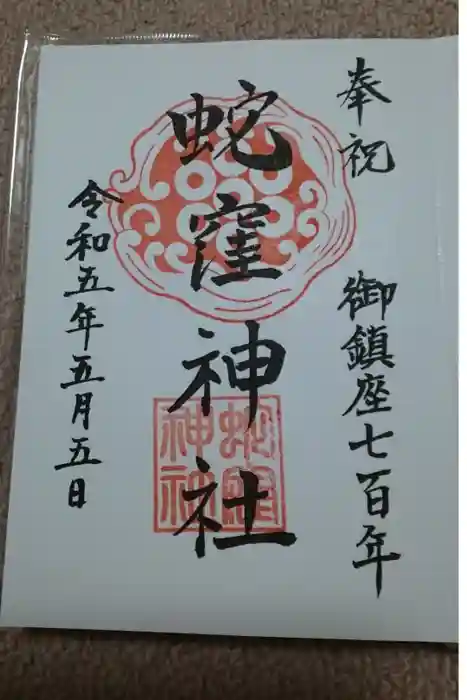 奉祝 御鎮座七百年
蛇窪神社
令和五年五月五日